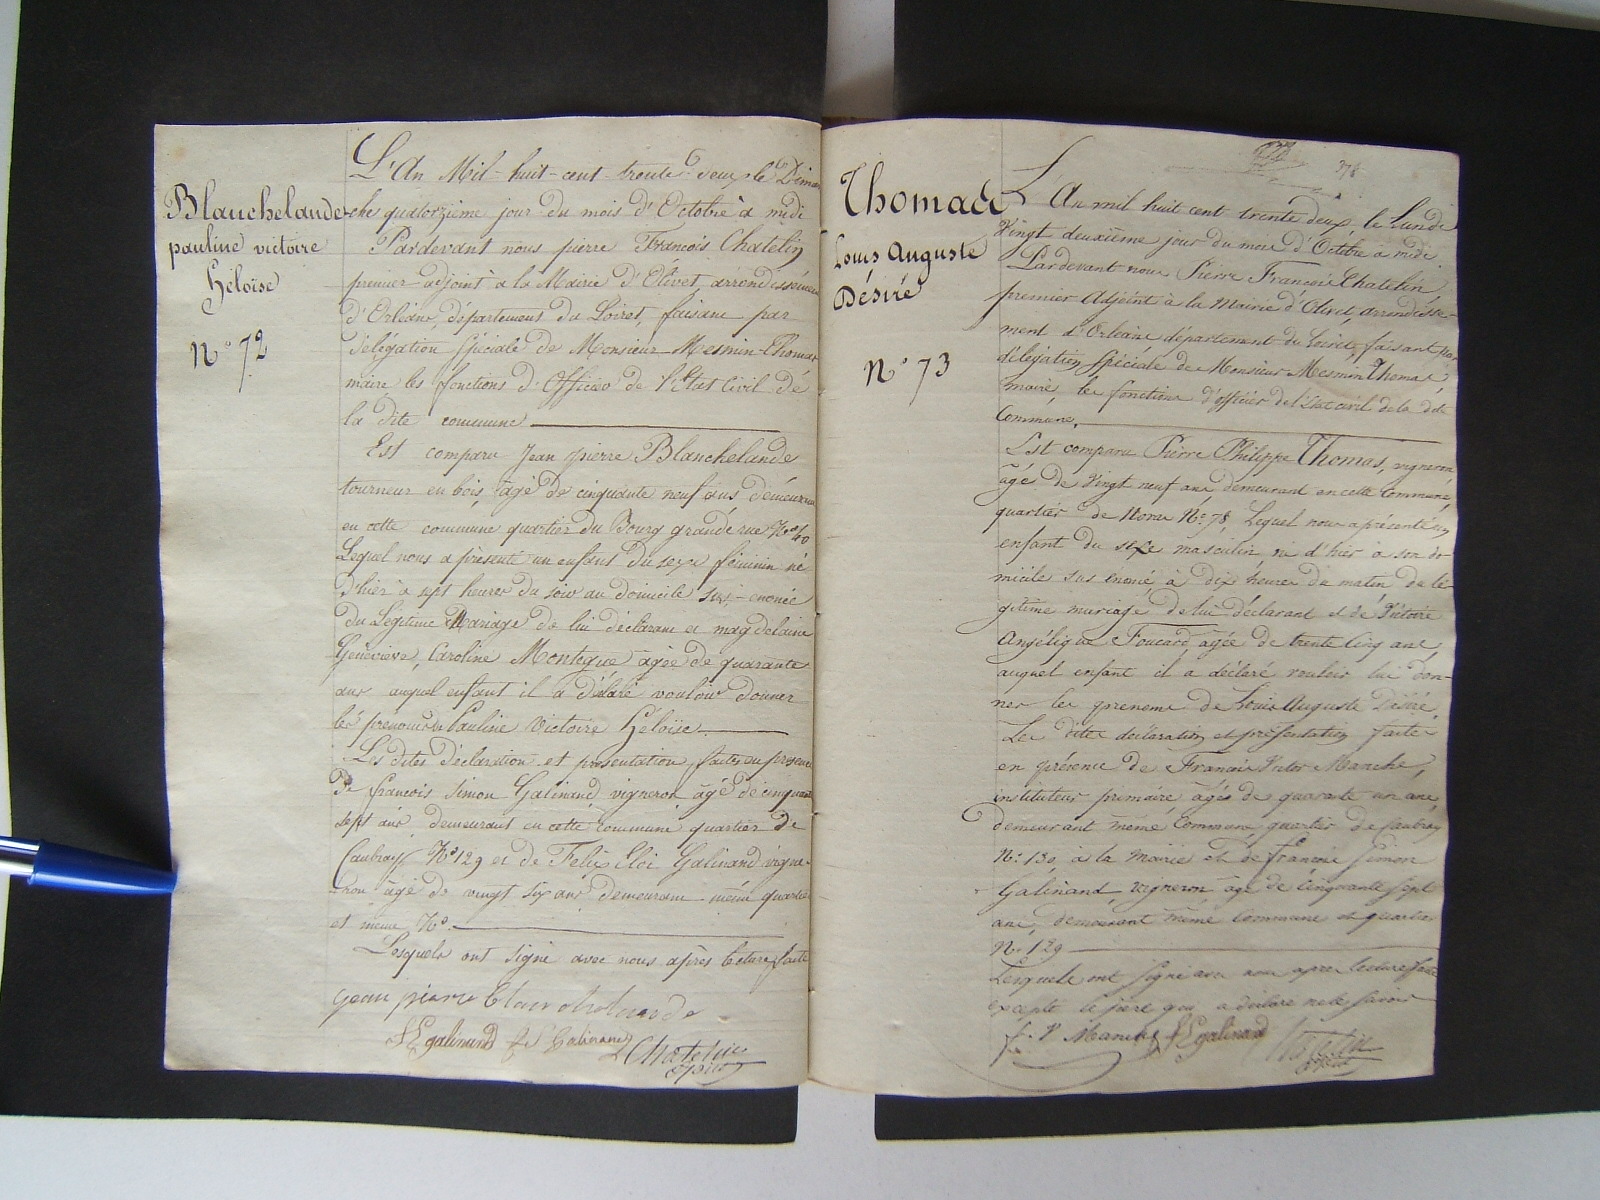 Blanchelande
pauline victoire
héloïse
N° 72
L'An Mil-huit-cent-trente deux le Diman
che quatorzième jour du mois d'Octobre à midi
Pardevant nous pierre François Chatelin
premier adjoint à la Mairie d'Olivet, arrondissement
d'Orléans, département du Loiret, faisant par
délégation spéciale de Monsieur Mesmin-Thomas
maire les fonctions d'Officier de l'Etat Civil de
la dite commune
Est comparu Jean pierre Blanchelande
tourneur en bois, âgé de cinquante neuf ans demeurant
en cette commune quartier du Bourg grande rue N° 40
Lequel nous a présenté un enfant du sexe féminin né
d'hier à sept heures du soir au domicile sus-énoncé
du Légitime Mariage de lui déclarant et magdelaine
Geneviève, Caroline Monteque âgée de quarante
ans auquel enfant il a déclaré vouloir donner
les prenoms de Pauline Victoire Héloïse.
Les dites déclaration et présentation faites en présence
de françois Simon Galinand vigneron âgé de cinquante
sept ans, demeurant en cette commune quartier de
Caubray N° 129 et de Felix Eloi Galinand vigne-
ron âgé de vingt six ans demeurant même quartier
et même N°.
Lesquels ont signé avec nous après lecture faite
jean pierre blanchelande
f S galinand f e Galinand
Chatelin
adjoint
378
Thomas
Louis Auguste
Désiré
N° 73
L'An mil huit cent trente deux, le Lundi
Vingt deuxième jour du mois d'Octobre à midi
Pardevant nous Pierre François Chatelin
premier Adjoint à la Mairie d'Olivet, arrondisse-
ment d'Orléans département du Loiret, faisant par
délégation spéciale de Monsieur Mesmin Thomas,
maire, les fonctions d'officier de l'état civil de la dite
Commune.
Est comparu Pierre Philippe Thomas, vigneron
âgé de Vingt neuf ans demeurant en cette Commune
quartier de N° 78, Lequel nous a présenté un
enfant du sexe masculin, né d'hier à son do-
micile sus énoncé à dix heures du matin du lé-
gitime mariage de lui déclarant et de Victoire
Angélique Foucard, âgée de trente cinq ans,
auquel enfant il a déclaré vouloir lui don-
ner les prenoms de Louis Auguste Désiré.
Les dites déclaration et présentation faites
en présence de François Victor Manche,
instituteur primaire, âgé de quarante un ans,
demeurant même Commune quartier de Caubray
N° 130, à la Mairie et de françois Simon
Galinand, vigneron âgé de Cinquante sept
ans, demeurant même Commune et quartier
N° 129
Lesquels ont signé avec nous après lecture faite
excepté le père qui a déclaré ne le savoir
f. V Manche f S galinand Chatelin
adjoint